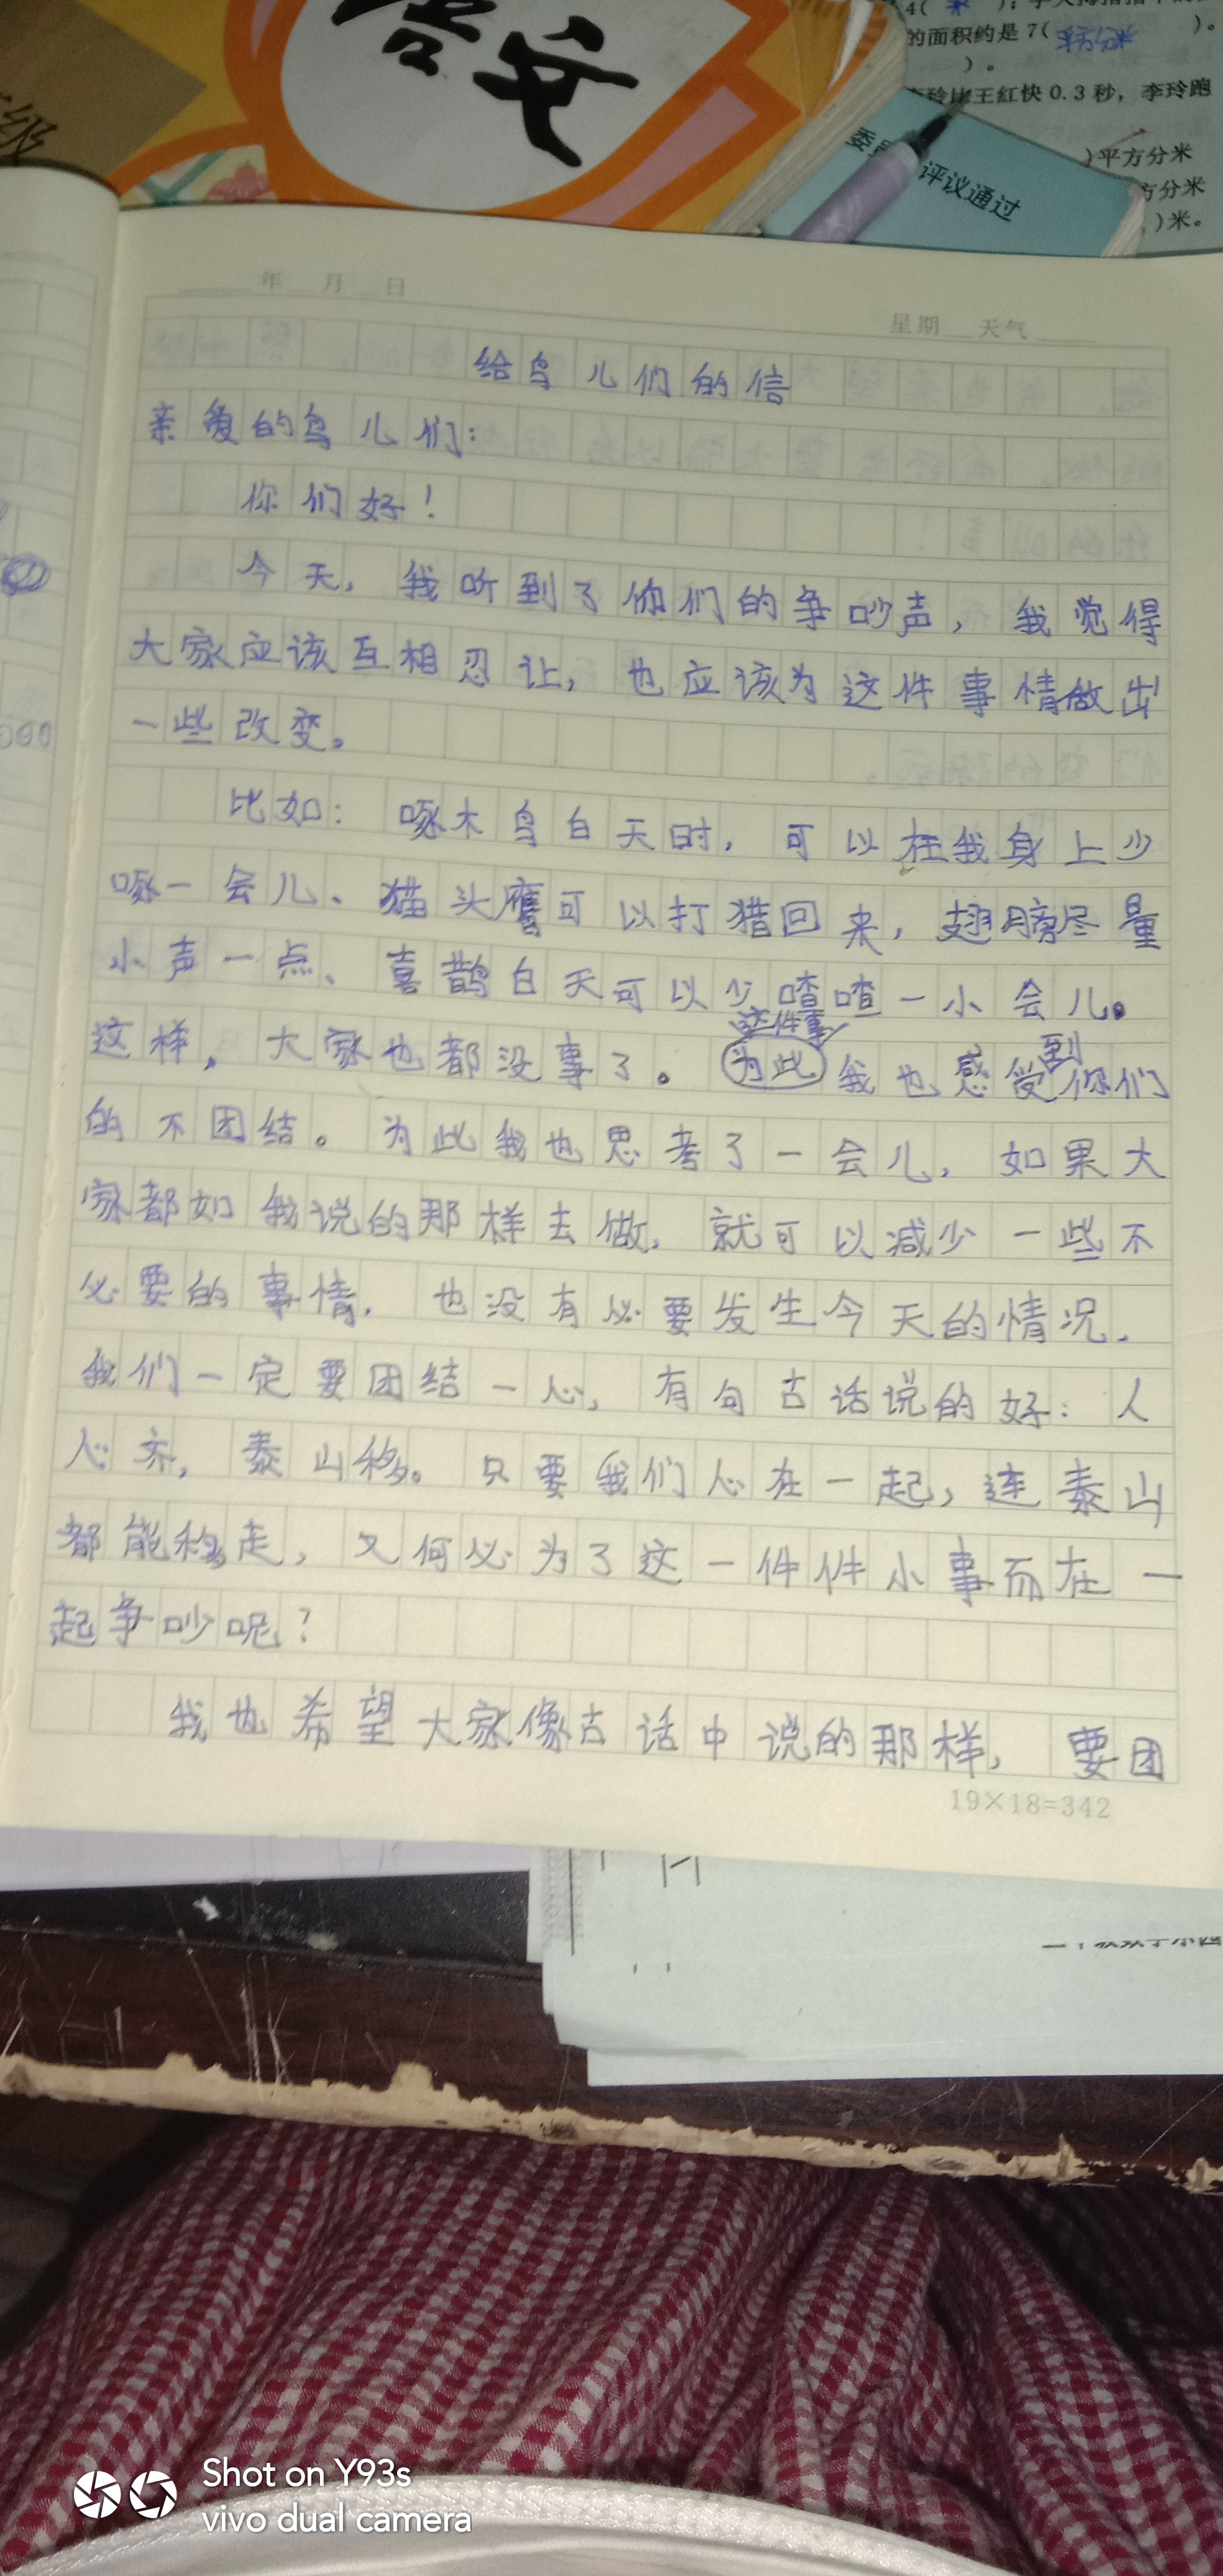 语文
级
4( 米 );
的面积约是7( 平方分米 )。
)。
李玲比王红快0.3秒，李玲跑
)平方分米
方分米
)米。
评议通过
年 月 日
星期 天气
给鸟儿们的信
亲爱的鸟儿们：
你们好！
今天，我听到了你们的争吵声，我觉得
大家应该互相忍让，也应该为这件事情做出
一些改变。
比如：啄木鸟白天时，可以在我身上少
啄一会儿、猫头鹰可以打猎回来，翅膀尽量
小声一点、喜鹊白天可以少喳喳一小会儿。
这件事
这样，大家也都没事了。为此我也感受到你们
的不团结。为此我也思考了一会儿，如果大
家都如我说的那样去做，就可以减少一些不
必要的事情，也没有必要发生今天的情况，
我们一定要团结一心，有句古话说的好：人
心齐，泰山移。只要我们心在一起，连泰山
都能移走，又何必为了这一件件小事而在一
起争吵呢？
我也希望大家像古话中说的那样，要团
19×18=342
Shot on Y93s
vivo dual camera